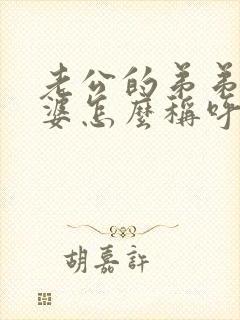 老公的弟弟
婆怎麼稱呼
胡嘉許